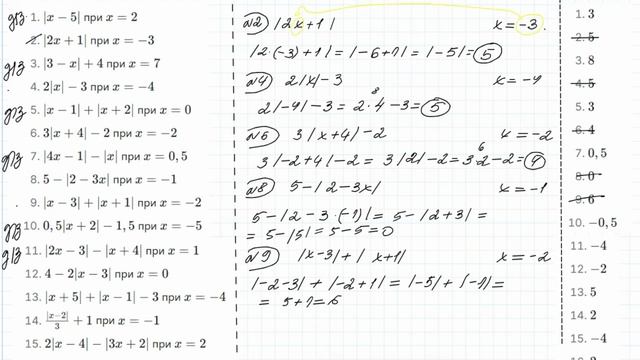 д/з 1. |x − 5| при x = 2
2. |2x + 1| при x = −3
д/з 3. |3 − x| + 4 при x = 7
4. 2|x| − 3 при x = −4
д/з 5. |x − 1| + |x + 2| при x = 0
6. 3|x + 4| − 2 при x = −2
д/з 7. |4x − 1| − |x| при x = 0,5
8. 5 − |2 − 3x| при x = −1
9. |x − 3| + |x + 1| при x = −2
д/з 10. 0,5|x + 2| − 1,5 при x = −5
д/з 11. |2x − 3| − |x + 4| при x = 1
12. 4 − 2|x − 3| при x = 0
13. |x + 5| + |x − 1| − 3 при x = −4
14. |x−2|/3 + 1 при x = −1
15. 2|x − 4| − |3x + 2| при x = 2
№2 |2x+1| x = −3.
|2·(−3)+1| = |−6+1| = |−5| = 5
№4 2|x|−3 x = −4
2|−4|−3 = 2·4−3 = 5
8
№6 3|x+4|−2 x = −2
3|−2+4|−2 = 3|2|−2 = 3·2−2 = 4
6
№8 5−|2−3x| x = −1
5−|2−3·(−1)| = 5−|2+3| =
= 5−|5| = 5−5 = 0
№9 |x−3|+|x+1| x = −2
|−2−3|+|−2+1| = |−5|+|−1| =
= 5+1 = 6
1. 3
2. 5
3. 8
4. 5
5. 3
6. 4
7. 0,5
8. 0
9. 6
10. −0,5
11. −4
12. −2
13. 5
14. 2
15. −4